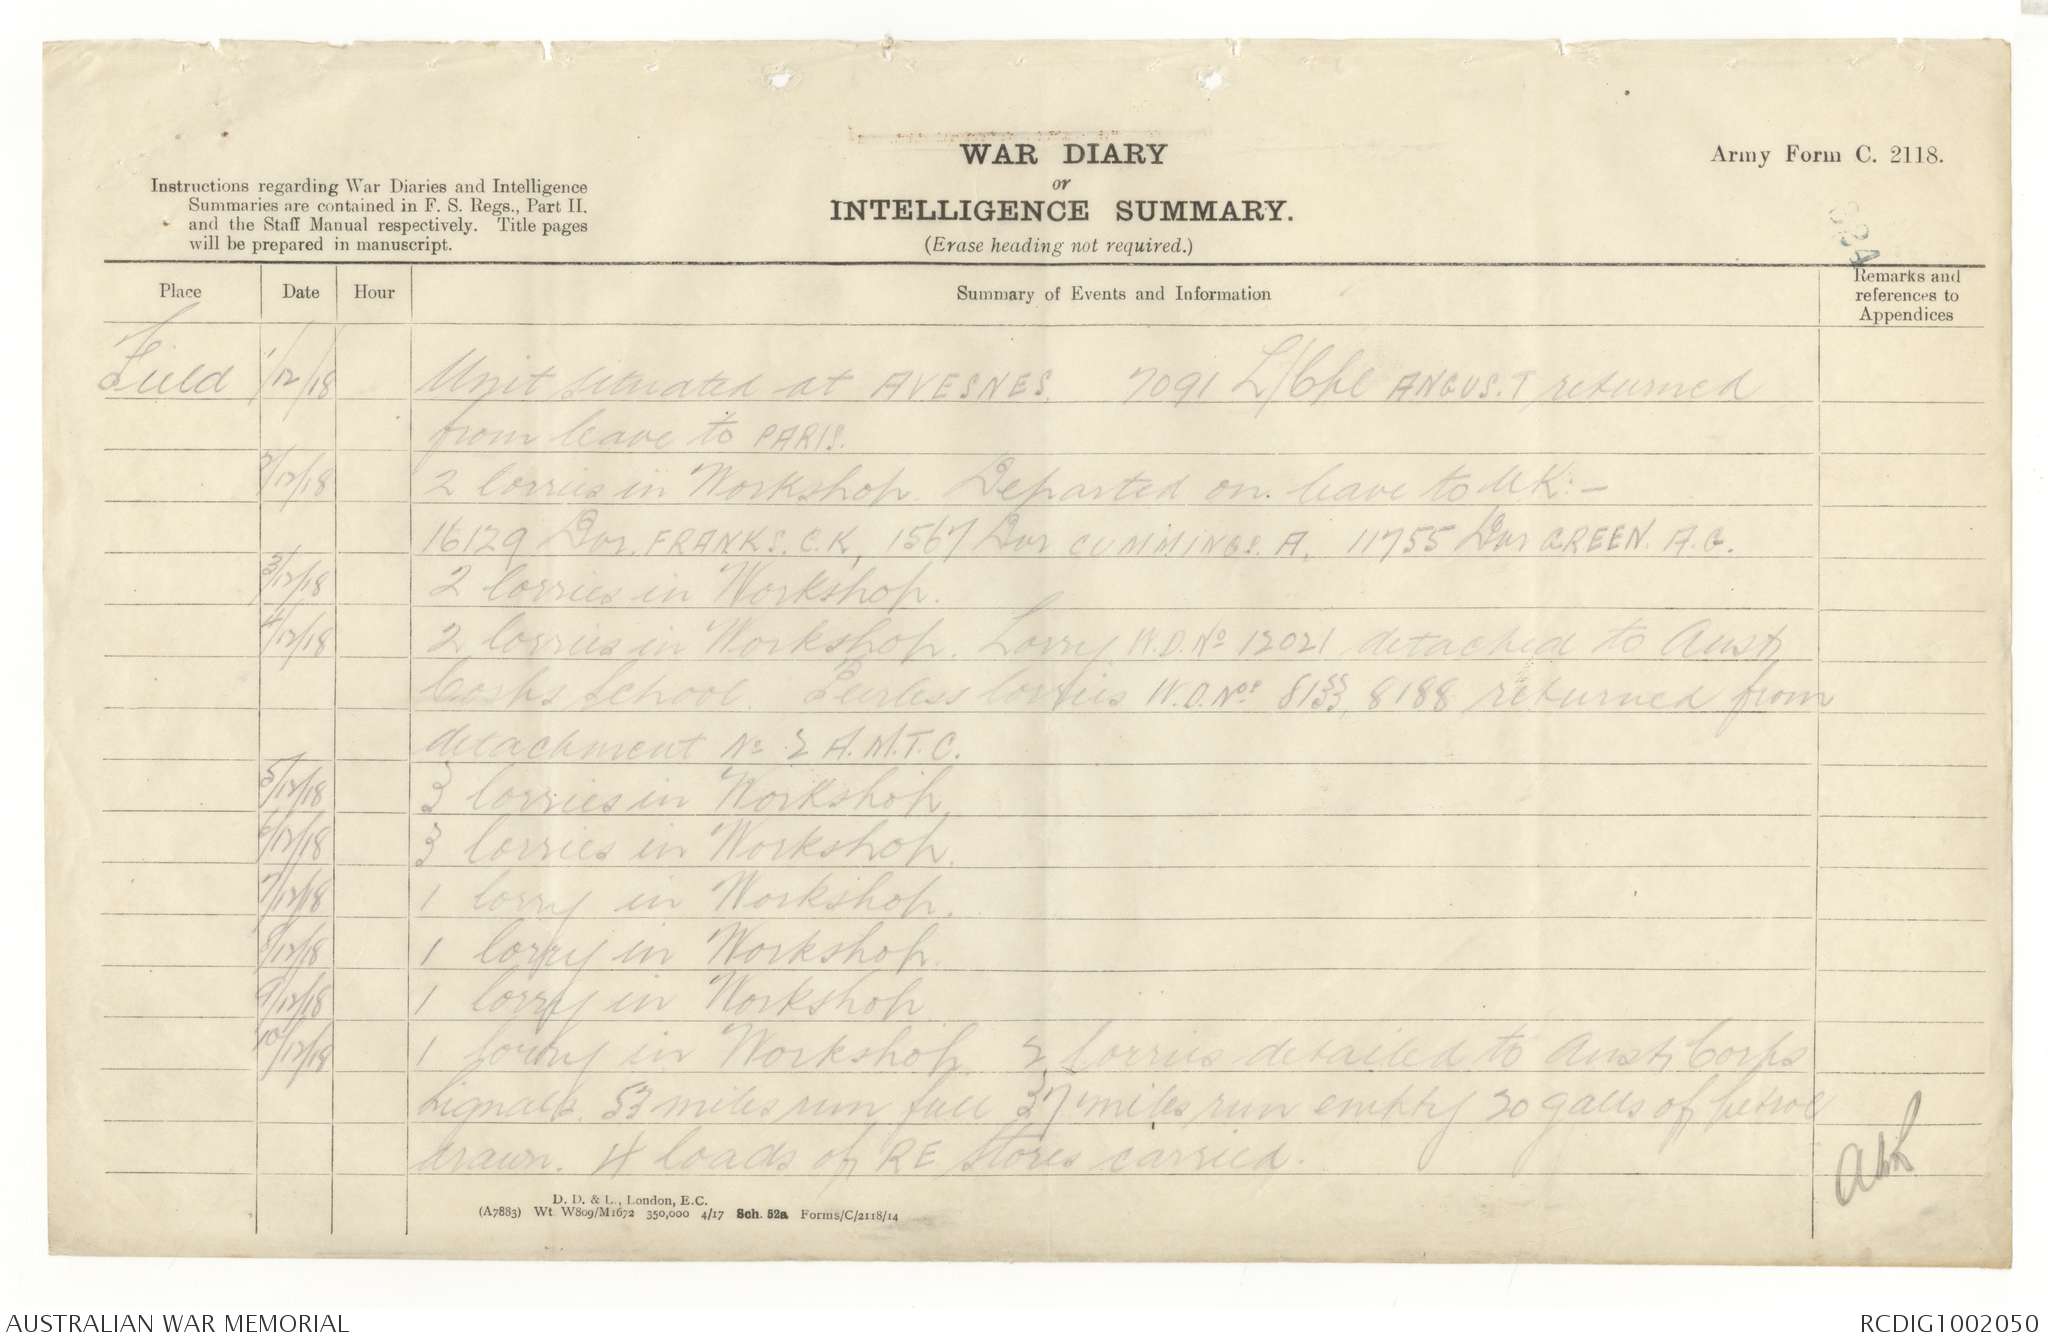 WAR DIARY
or
INTELLIGENCE SUMMARY.
(Erase heading not required.)
Army Form C. 2118.
Instructions regarding War Diaries and Intelligence
Summaries are contained in F. S. Regs., Part II.
and the Staff Manual respectively. Title pages
will be prepared in manuscript.
Place Date Hour Summary of Events and Information Remarks and references to Appendices
Field 1/12/18 Unit situated at AVESNES. 7091 L/Cpl ANGUS. T returned
from leave to PARIS.
2/12/18 2 lorries in Workshop. Departed on leave to U.K:-
16129 Dvr. FRANKS. C.K, 1567 Dvr CUMMINGS. A, 11755 Dvr GREEN. A.G.
3/12/18 2 lorries in Workshop.
4/12/18 2 lorries in Workshop. Lorry W.D. No 12021 detached to Aust
Corps School. Peerless lorries W.D. Nos 8188 returned from
detachment No 2 A.M.T.C.
5/12/18 3 lorries in Workshop
6/12/18 3 lorries in Workshop.
7/12/18 1 lorry in Workshop.
8/12/18 1 lorry in Workshop.
9/12/18 1 lorry in Workshop
10/12/18 1 lorry in Workshop. 2 lorries detailed to Aust Corps
Signals. 53 miles run full 37 miles run empty 20 galls of petrol
drawn. 4 loads of RE Stores carried.
D. D. & L., London, E.C.
(A7883) Wt. W809/M1672 350,000 4/17 Sch. 52a Forms/C/2118/14
AUSTRALIAN WAR MEMORIAL
RCDIG1002050